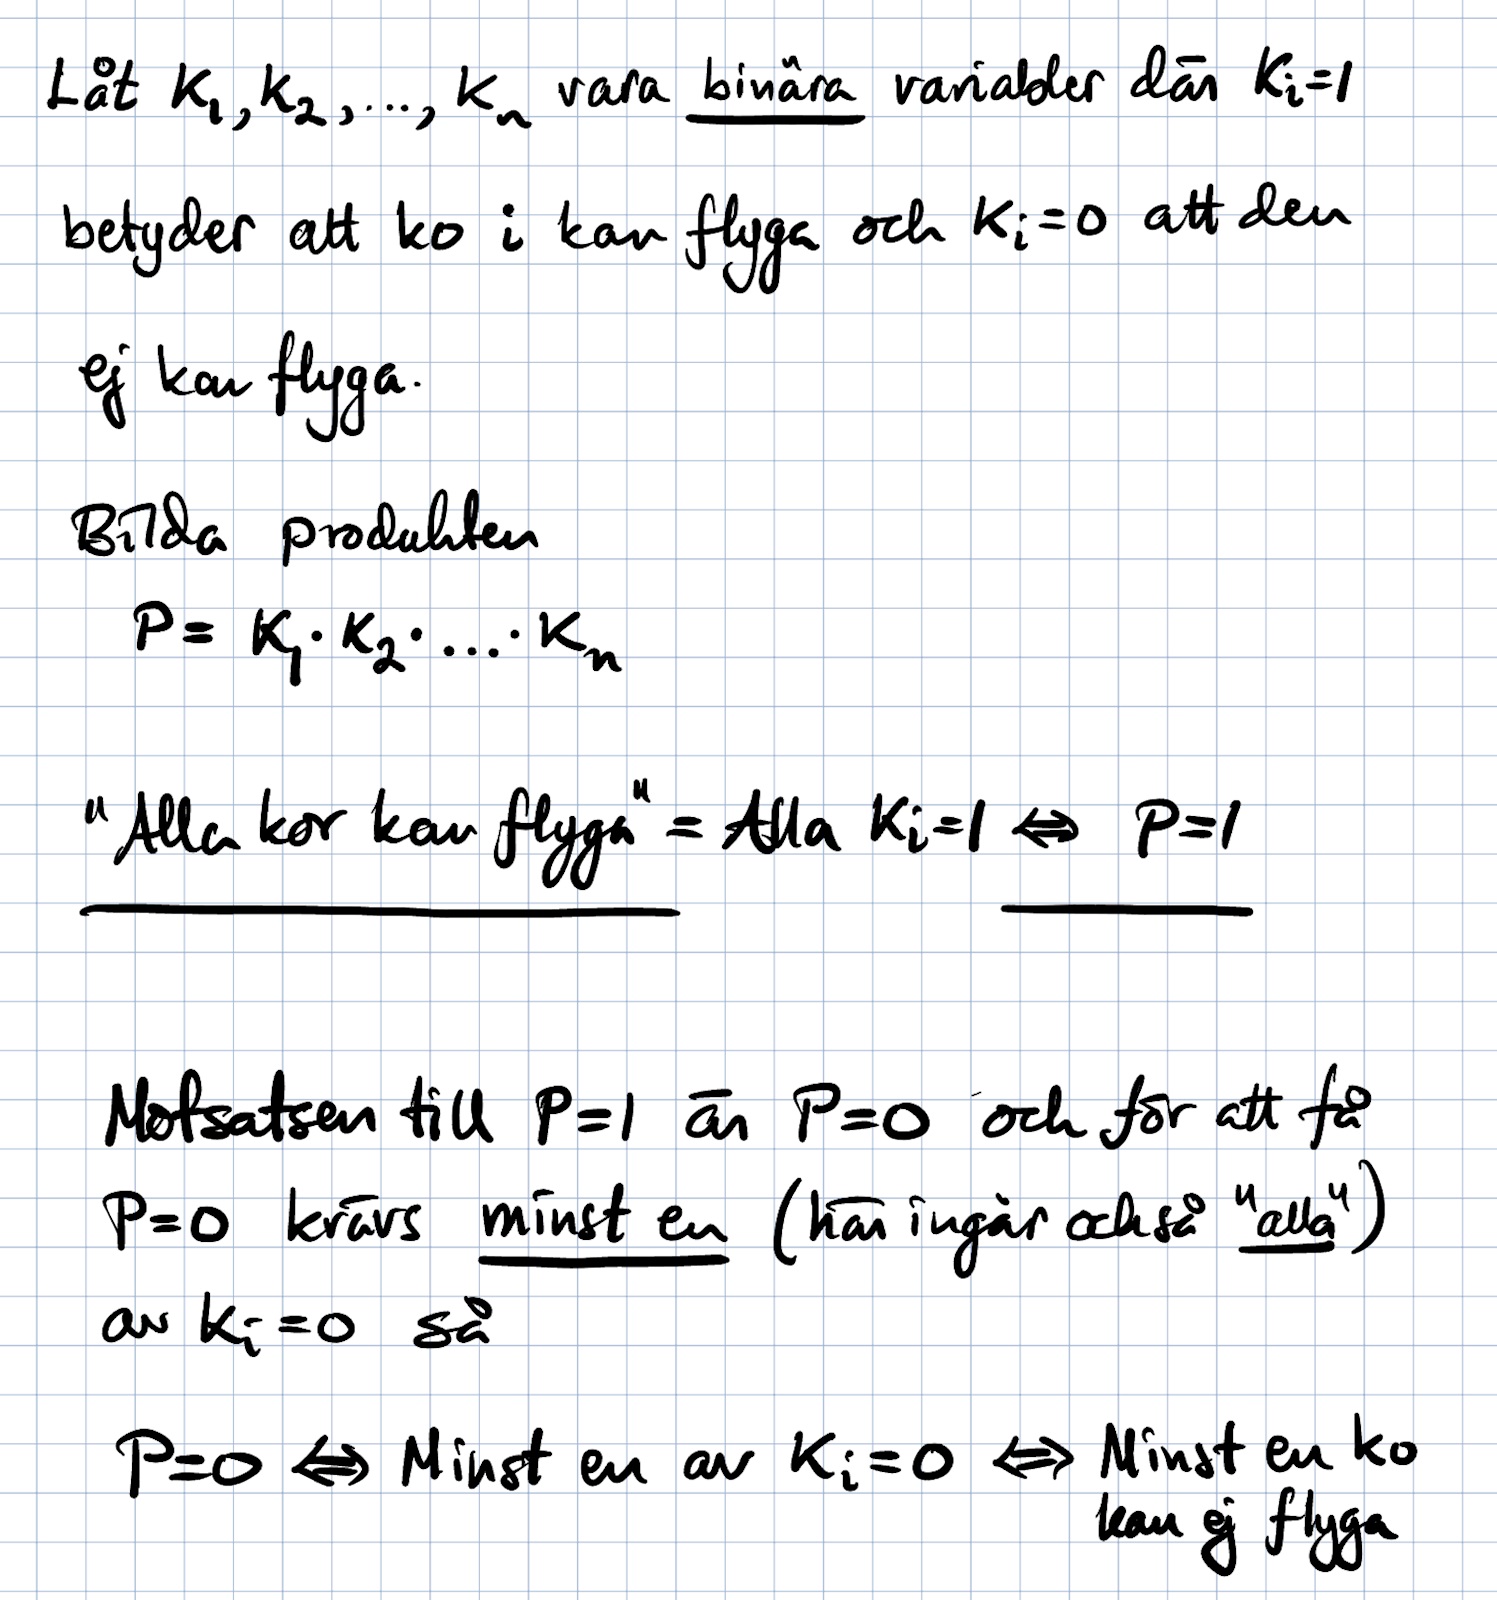 Låt K₁, K₂, ..., Kₙ vara binära variabler där Kᵢ=1
betyder att ko i kan flyga och Kᵢ=0 att den
ej kan flyga.
Bilda produkten
P= K₁·K₂·...·Kₙ
"Alla kor kan flyga" = Alla Kᵢ=1 ⇔ P=1
Motsatsen till P=1 är P=0 och för att få
P=0 krävs minst en (här ingår också "alla")
av Kᵢ=0 så
P=0 ⇔ Minst en av Kᵢ=0 ⇔ Minst en ko
kan ej flyga